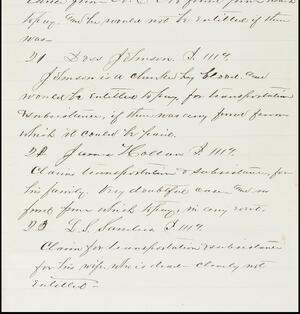 to pay, and he would not be entitled if there
was—
21 Doss Johnson. P. 1119.
Johnson is a cherokee by blood. and
would be entitled to pay, for transportation
& subsistence, if there was any fund from
which it could be paid.
22 James P. 1119.
Claims transportation & subsistence for
his family. Very doubtful case. and no
fund from which to pay, in any event.
23 L. S. Sanders P 1119.
Claim for transportation & subsistence
for his wife, who is dead— clearly not
entitled—